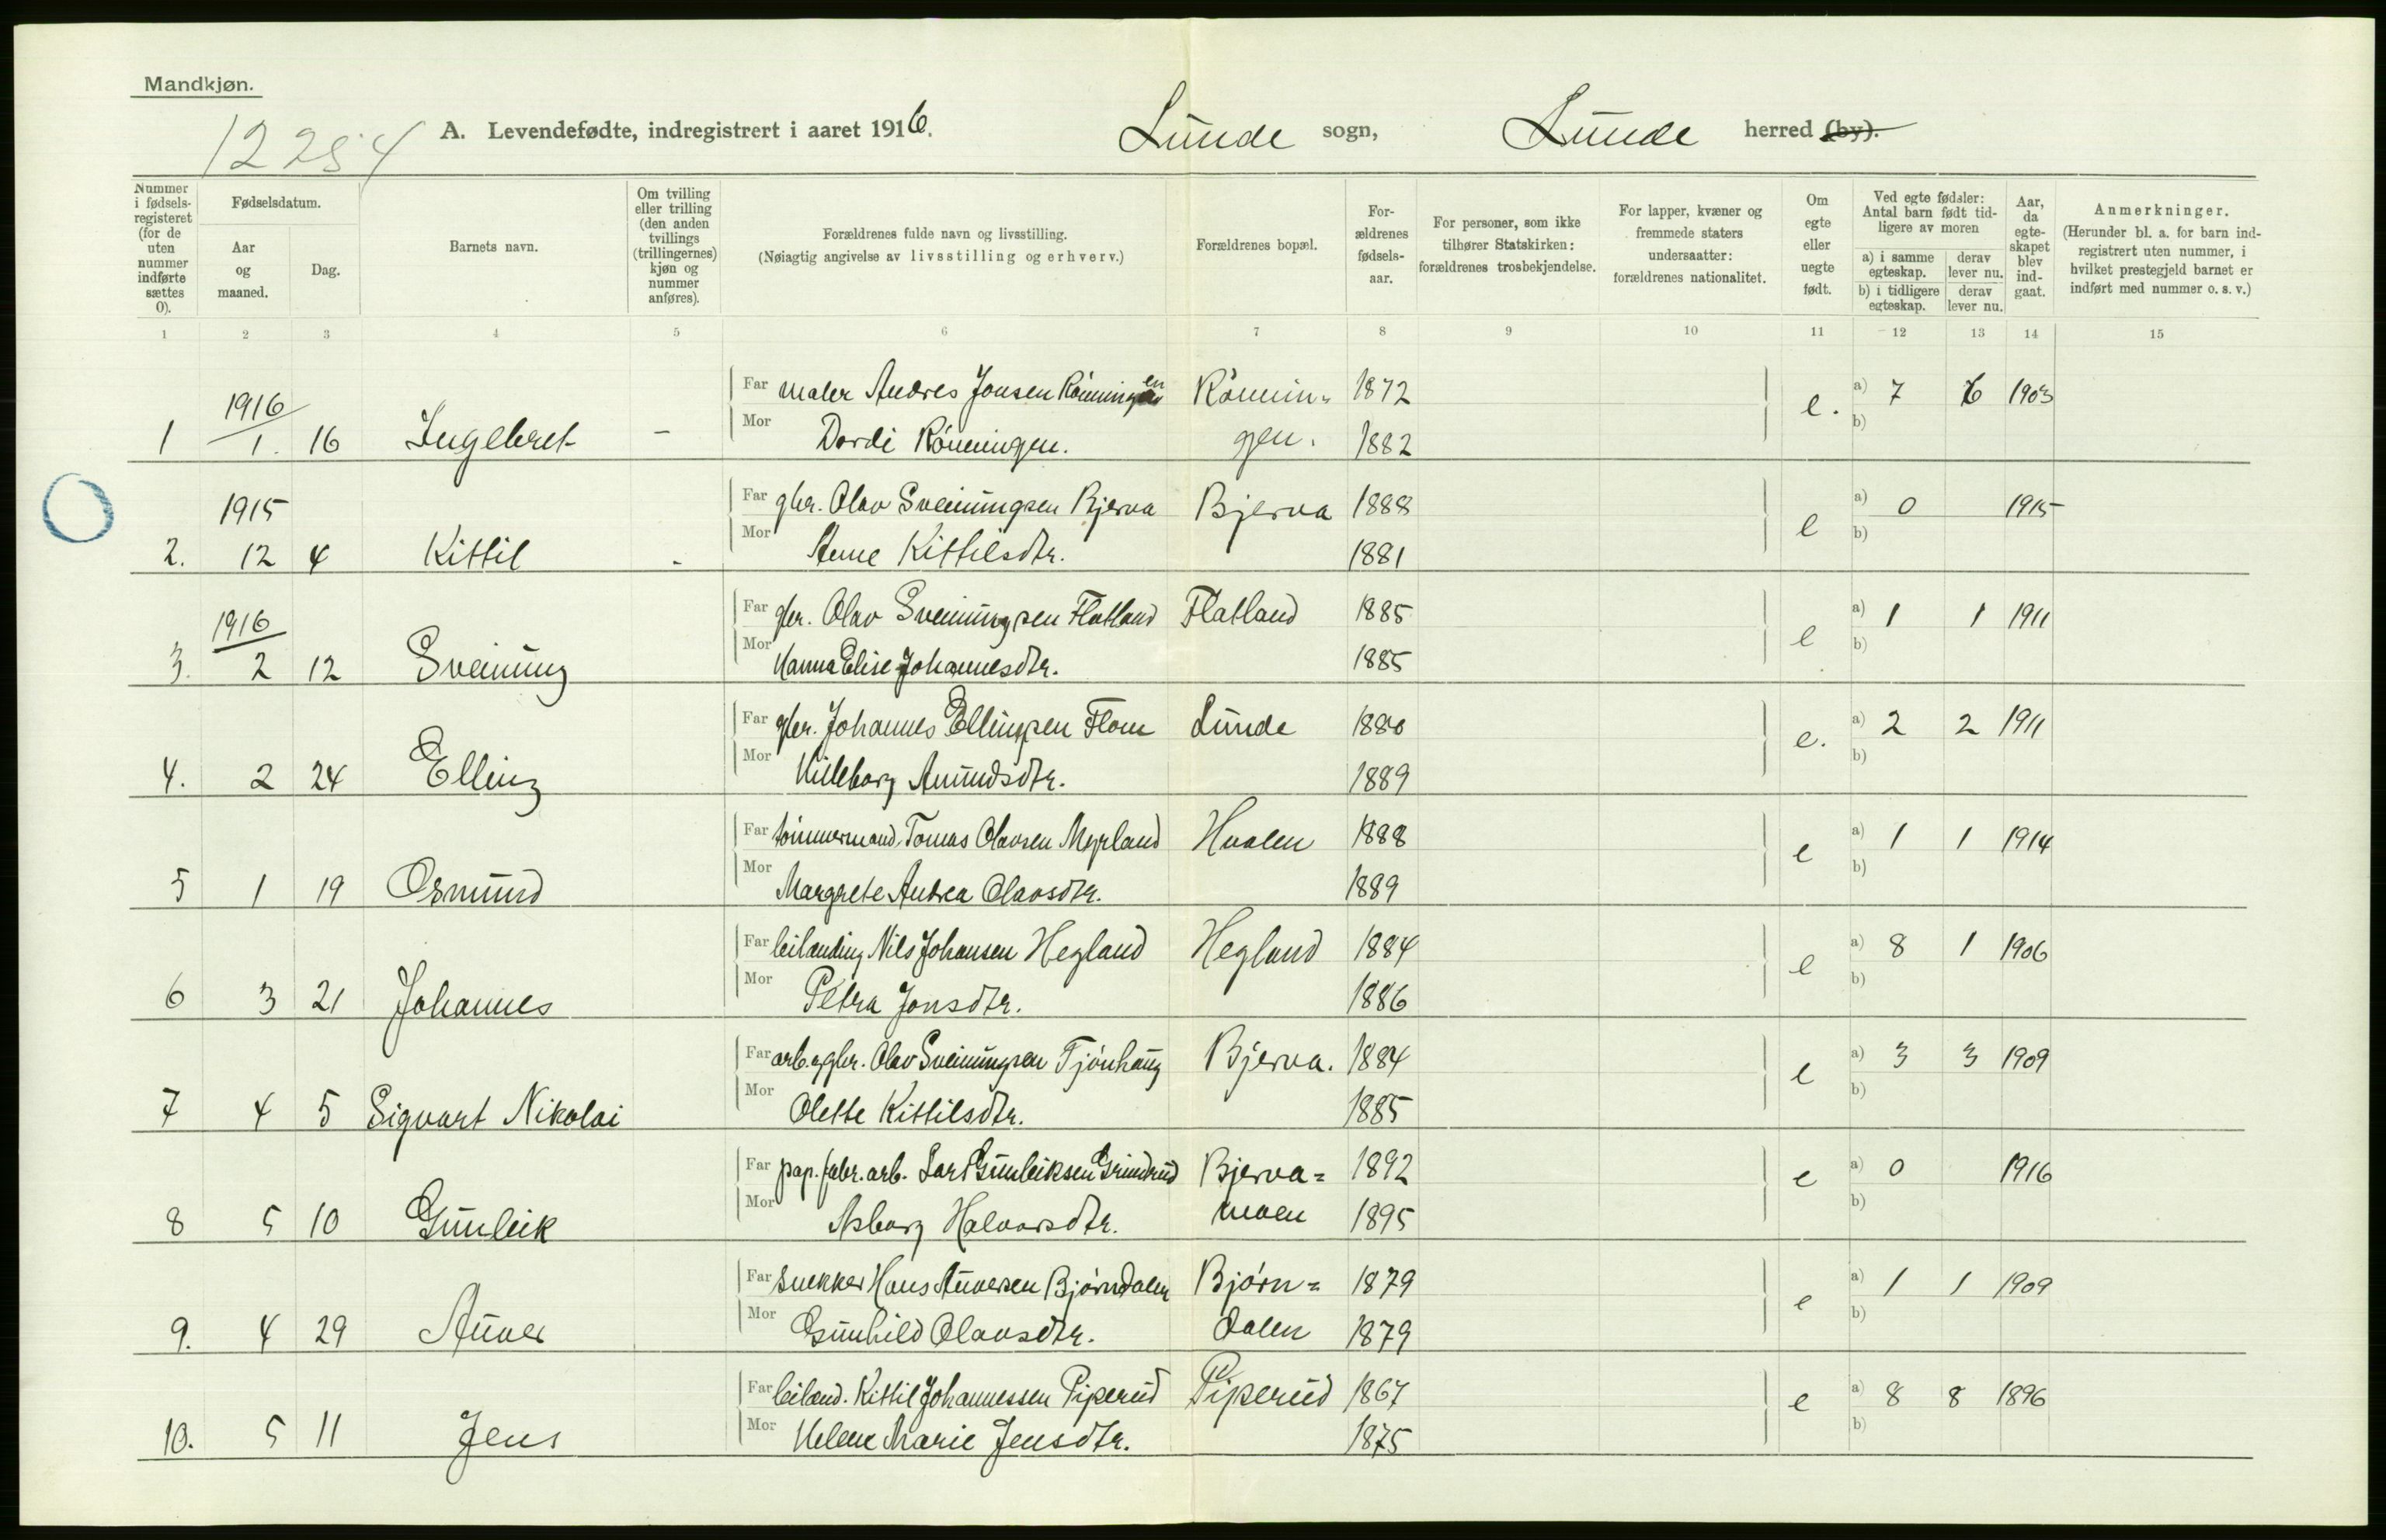 Mandkjøn.
12284
A. Levendefødte, indregistrert i aaret 1916. Lunde sogn, Lunde herred (by).
Nummer i fødsels-registeret (for de uten nummer indførte sættes 0).
Fødselsdatum.
Aar og maaned.
Dag.
Barnets navn.
Om tvilling eller trilling (den anden tvillings (trillingernes) kjøn og nummer anføres).
Forældrenes fulde navn og livsstilling.
(Nøiagtig angivelse av livsstilling og erhverv.)
Forældrenes bopæl.
For-ældrenes fødsels-aar.
For personer, som ikke tilhører Statskirken: forældrenes trosbekjendelse.
For lapper, kvæner og fremmede staters undersaatter: forældrenes nationalitet.
Om egte eller uegte født.
Ved egte fødsler: Antal barn født tid-ligere av moren
a) i samme egteskap.
derav lever nu.
b) i tidligere egteskap.
derav lever nu.
Aar, da egte-skapet blev ind-gaat.
Anmerkninger.
(Herunder bl. a. for barn ind-registrert uten nummer, i hvilket prestegjeld barnet er indført med nummer o. s. v.)
1 2 3 4 5 6 7 8 9 10 11 12 13 14 15
1916 Far maler Andres Jonsen Rønningen Rønnin- 1872 e. a) 7 6 1903
1 1. 16 Ingebret - Mor Dordi Rønningen. gen. 1882 b)
1915 Far gbr. Olav Sveinungsen Bjerva Bjerva 1888 e a) 0 1915
2. 12 4 Kittil - Mor Anne Kittilsdtr. 1881 b)
1916 Far gbr. Olav Sveinungsen Flatland Flatland 1885 e a) 1 1 1911
3. 2 12 Sveinung Mor Hanna Elise Johannesdtr. 1885 b)
Far gbr. Johannes Ellingsen Flom Lunde 1880 e. a) 2 2 1911
4. 2 24 Elling Mor Hilleborg Amundsdtr. 1889 b)
Far tømmermand Tomas Olavsen Myrland Hvalen 1888 e a) 1 1 1914
5 1 19 Osmund Mor Margrete Andrea Olavsdtr. 1889 b)
Far leilænding Nils Johansen Hegland Hegland 1884 e a) 8 1 1906
6 3 21 Johannes Mor Petra Jonsdtr. 1886 b)
Far arb. og gbr. Olav Sveinungsen Tjønhaug Bjerva. 1884 e a) 3 3 1909
7 4 5 Sigvart Nikolai Mor Olette Kittilsdtr. 1885 b)
Far pap. fabr. arb. Lars Gunleiksen Grindrud Bjerva= 1892 e a) 0 1916
8 5 10 Gunleik Mor Asborg Halvorsdtr. moen 1895 b)
Far snekker Hans Auversen Bjørndalen Bjørn= 1879 e a) 1 1 1909
9. 4 29 Auver Mor Gunhild Olavsdtr. dalen 1879 b)
Far leiland. Kittil Johannessen Piperud Piperud 1867 e a) 8 8 1896
10. 5 11 Jens Mor Helene Marie Jensdtr. 1875 b)